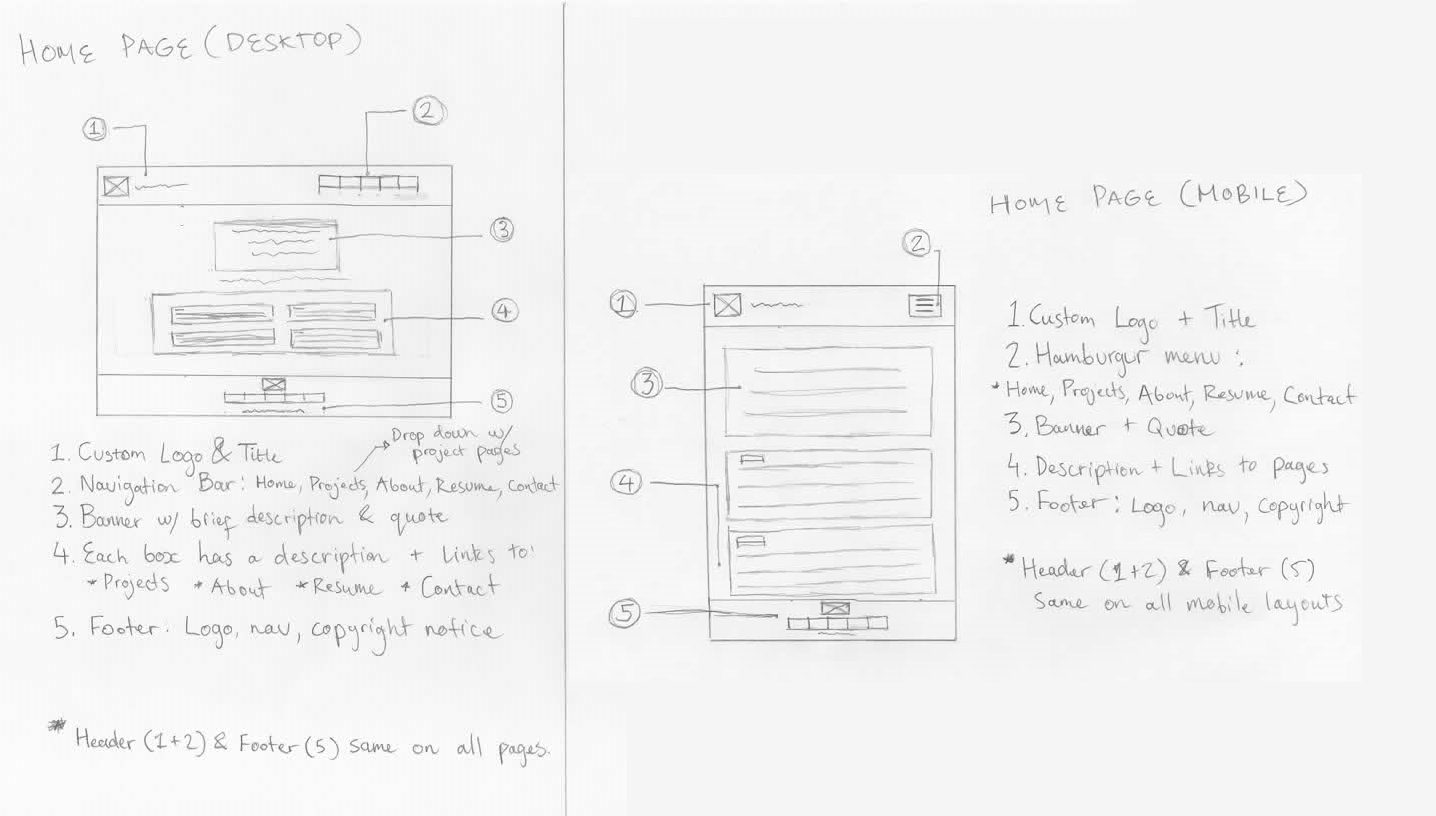 HOME PAGE (DESKTOP)
1
2
3
4
5
Drop down w/
project pages
1. Custom Logo & Title
2. Navigation Bar: Home, Projects, About, Resume, Contact
3. Banner w/ brief description & quote
4. Each box has a description + Links to:
* Projects * About * Resume * Contact
5. Footer. Logo, nav, copyright notice
* Header (1+2) & Footer (5) same on all pages.
HOME PAGE (MOBILE)
2
1
3
4
5
1. Custom Logo + Title
2. Hamburgur menu :
* Home, Projects, About, Resume, Contact
3. Banner + Quote
4. Description + Links to pages
5. Footer: Logo, nav, copyright
* Header (1+2) & Footer (5)
same on all mobile layouts